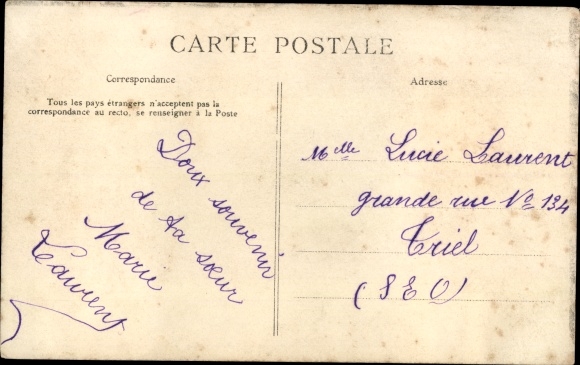 CARTE POSTALE
Correspondance
Tous les pays étrangers n'acceptent pas la
correspondance au recto, se renseigner à la Poste
Doux souvenir
de ta sœur
Marie
Laurent
Adresse
Melle Lucie Laurent
grande rue No 134
Triel
(S E O)